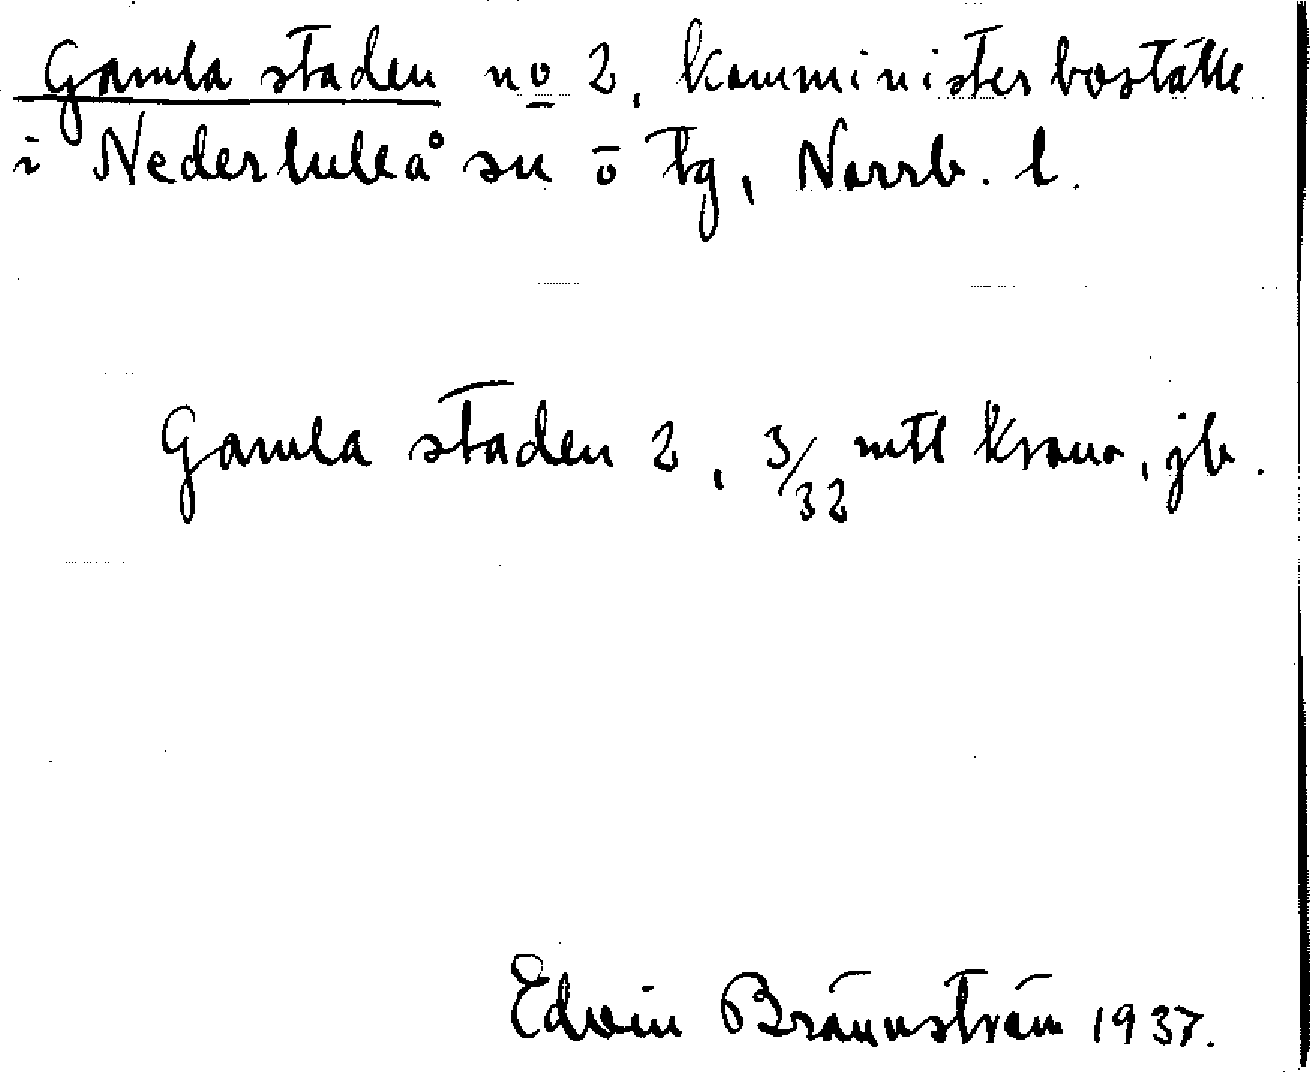 Gamla staden no 2, komministerboställe
i Nederluleå sn o tg, Norrb. l.
Gamla staden 2, 3/32 mtl krono, jb.
Edvin Brännström 1937.